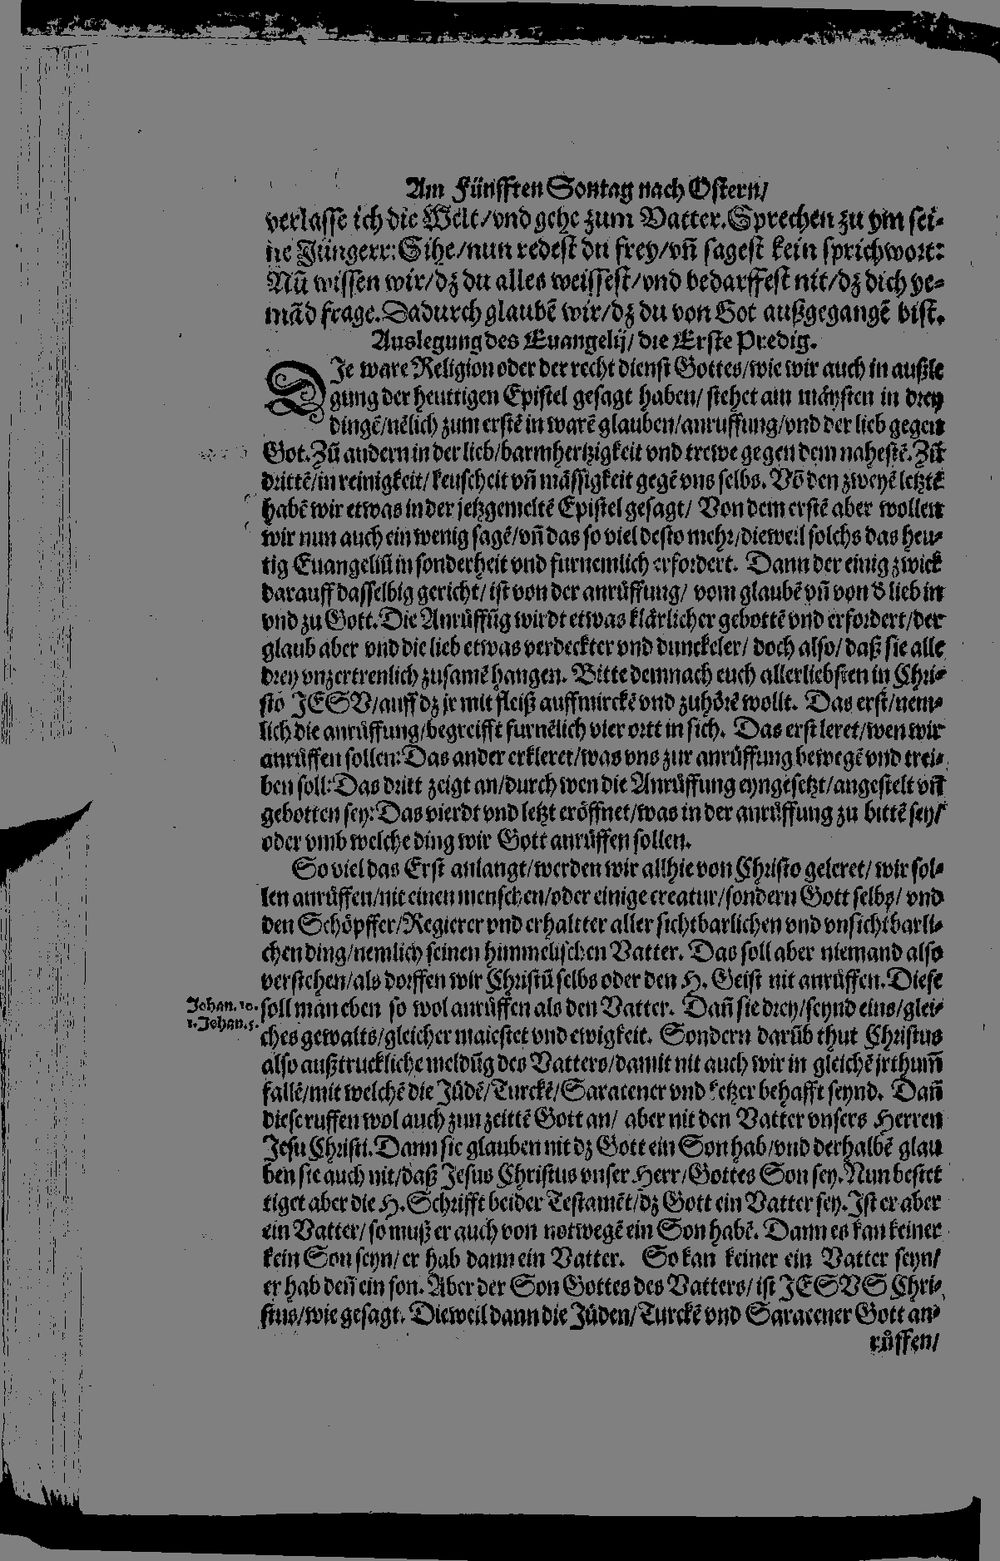 Am Fünfften Sontag nach Ostern/
verlasse ich die Welt/vnd gehe zum Vatter. Sprechen zu ym sei-
ne Jüngerr: Sihe/nun redest du frey/vñ sagest kein sprichwort:
Nũ wissen wir/dz du alles weissest/vnd bedarffest nit/dz dich ye-
mãd frage. Dadurch glaubẽ wir/dz du von Got außgegangẽ bist.
Auslegung des Euangelij/ die Erste Predig.
DJe ware Religion oder der recht dienst Gottes/wie wir auch in außle
gung der heuttigen Epistel gesagt haben/ stehet am máysten in drey
dingẽ/nẽlich zum erstẽ in warẽ glauben/anruffung/vnd der lieb gegen
Got. Zũ andern in der lieb/barmhertzigkeit vnd trewe gegen dem nahestẽ. Zũ
drittẽ/in reinigkeit/keuscheit vñ mässigkeit gegẽ vns selbs. Võ den zweyẽ letztẽ
habẽ wir etwas in der jetzgemeltẽ Epistel gesagt/ Von dem erstẽ aber wollen
wir nun auch ein wenig sagẽ/vñ das so viel desto mehr/dieweil solchs das heu-
tig Euangeliũ in sonderheit vnd furnemlich erfordert. Dann der einig zwick
darauff dasselbig gericht/ ist von der anrüffung/ vom glaubẽ vñ von d lieb in
vnd zu Gott. Die Anrüffũg wirdt etwas klärlicher gebottẽ vnd erfordert/der
glaub aber vnd die lieb etwas verdeckter vnd dunckeler/ doch also/ daß sie alle
drey vnzertrenlich zusamẽ hangen. Bitte demnach euch allerliebsten in Chri-
sto JESV/auff dz jr mit fleiß auffmirckẽ vnd zuhörẽ wollt. Das erst/nem-
lich die anrüffung/begreifft furnẽlich vier ortt in sich. Das erst leret/wen wir
anrüffen sollen: Das ander erkleret/was vns zur anrüffung bewegẽ vnd trei-
ben soll: Das dritt zeigt an/durch wen die Anrüffung eyngesetzt/angestelt vñ
gebotten sey: Das vierdt vnd letzt eröffnet/was in der anrüffung zu bittẽ sey/
oder vmb welche ding wir Gott anrüffen sollen.
So viel das Erst anlangt/werden wir allhie von Christo geleret/ wir sol-
len anrüffen/nit einen menschen/oder einige creatur/sondern Gott selbs/ vnd
den Schöpffer/Regierer vnd erhaltter aller sichtbarlichen vnd vnsichtbarli-
chen ding/nemlich seinen himmelischen Vatter. Das soll aber niemand also
verstehen/als dorffen wir Christũ selbs oder den H. Geist nit anrüffen. Diese
Johan. 10.
1. Johan. 5.
soll man eben so wol anrüffen als den Vatter. Dañ sie drey/seynd eins/glei-
ches gewalts/gleicher maiestet vnd ewigkeit. Sondern darũb thut Christus
also außtruckliche meldũg des Vatters/damit nit auch wir in gleichẽ jrthum̃
fallẽ/mit welchẽ die Jüdẽ/Turckẽ/Saracener vnd ketzer behafft seynd. Dañ
diese ruffen wol auch zun zeittẽ Gott an/ aber nit den Vatter vnsers Herren
Jesu Christi. Dann sie glauben nit dz Gott ein Son hab/vnd derhalbẽ glau
ben sie auch nit/daß Jesus Christus vnser Herr/Gottes Son sey. Nun bestet
tiget aber die H. Schrifft beider Testamẽt/dz Gott ein Vatter sey. Ist er aber
ein Vatter/ so muß er auch von notwegẽ ein Son habẽ. Dann es kan keiner
kein Son seyn/ er hab dann ein Vatter. So kan keiner ein Vatter seyn/
er hab deñ ein son. Aber der Son Gottes des Vatters/ ist JESVS Chri-
stus/wie gesagt. Dieweil dann die Jüden/Turckẽ vnd Saracener Gott an-
rüffen/